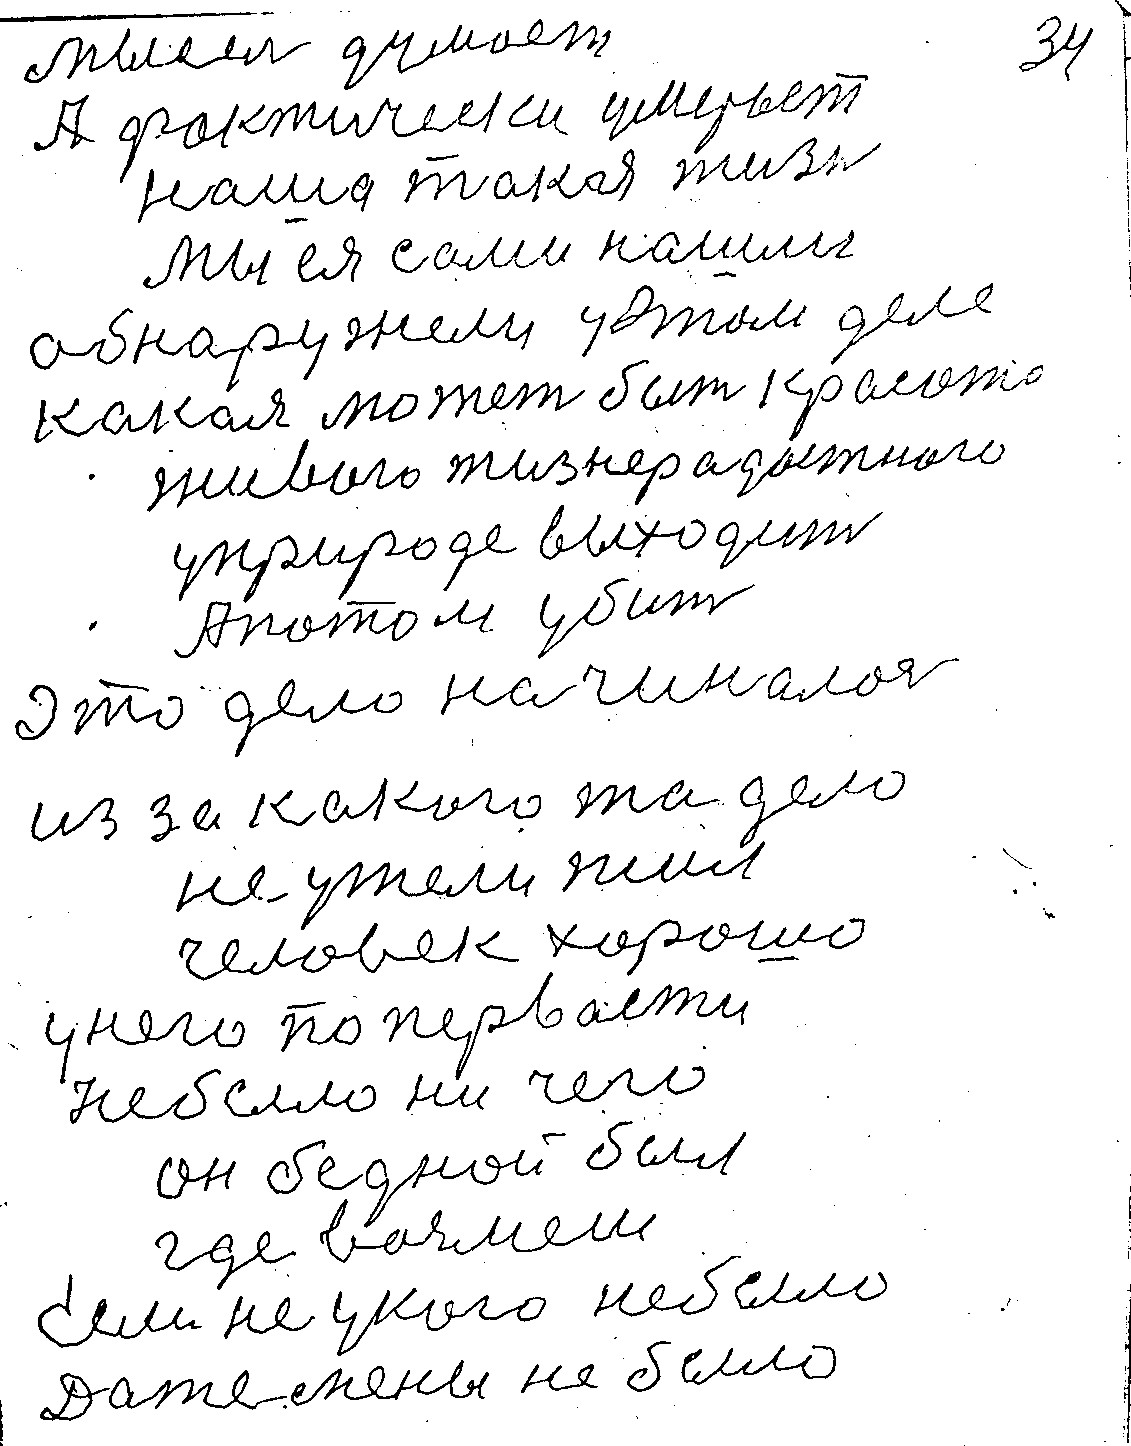 34
мысел думает
А фактически умерает
наша такая жизн
мы ея сами нашли
обнаружели уэтом деле
какая может быт красота
живого жизнерадостного
уприроде выходит
Апотом убит
Это дело начиналоя
из за какого та дело
не ужели жил
человек хорошо
унего по первасти
небыло ни чего
он бедной был
где возмеш
Если не укого небыло
Даже жены не было